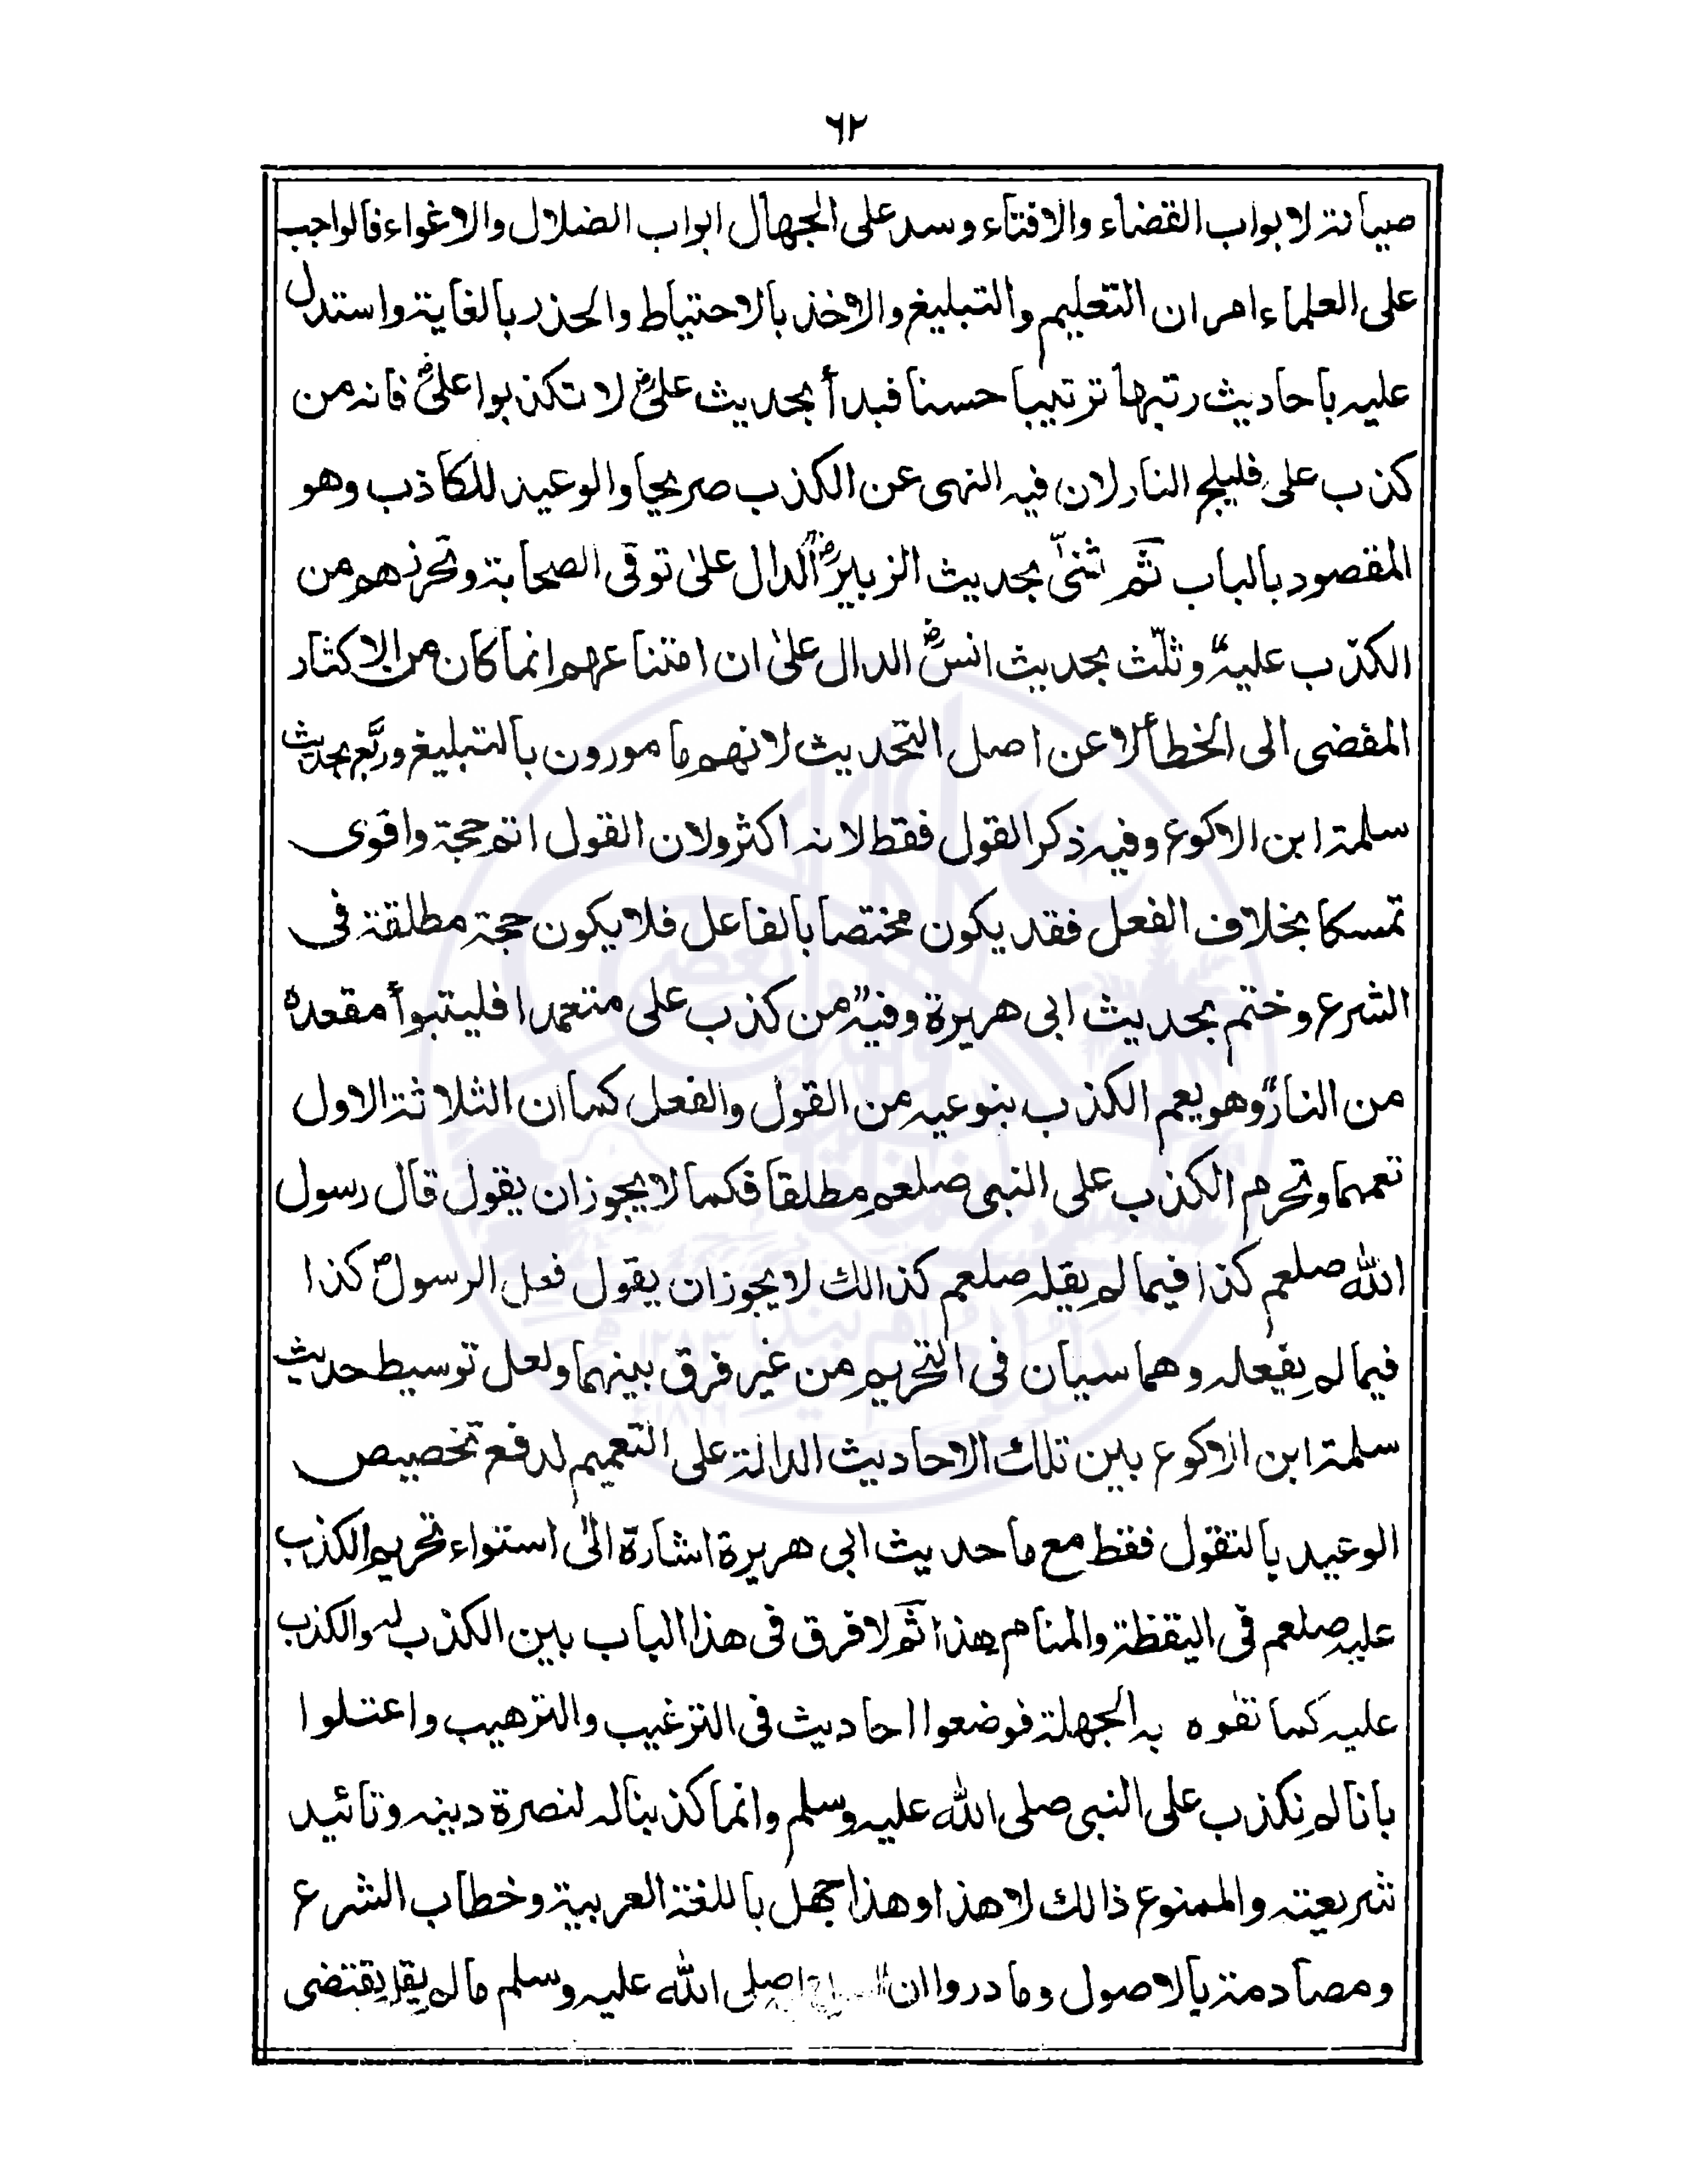 ٦٢
صيانة لابواب القضاء والافتاء وسد على الجهال ابواب الضلال والاغواء فالواجب
على العلماء امران التعليم والتبليغ والاخذ بالاحتياط والحذر بالغاية واستدل
عليه باحاديث رتبها ترتيبا حسنا فبدأ بحديث علىؓ لا تكذبوا علىؓ فانه من
كذب على فليلج النار لان فيه النهى عن الكذب صريحا والوعيد للكاذب وهو
المقصود بالباب ثم ثنىّ بحديث الزبيرؓ الدال علىٰ توقى الصحابة وتحرزهم من
الكذب عليهؐ وثلّث بحديث انسؓ الدال علىٰ ان امتناعهم انما كان من الاكثار
المفضى الى الخطأ لا عن اصل التحديث لانهم مامورون بالتبليغ وربّع بحديث
سلمة ابن الاكوع وفيه ذكر القول فقط لانه اكثر ولان القول اتم حجة واقوى
تمسكا بخلاف الفعل فقد يكون مختصا بالفاعل فلا يكون حجة مطلقة فى
الشرع وختم بحديث ابى هريرة وفيه "من كذب على متعمدا فليتبوأ مقعده
من النار" وهو يعم الكذب بنوعيه من القول والفعل كما ان الثلاثة الاول
تعمهما وتحرم الكذب على النبى صلعم مطلقا فكما لا يجوز ان يقول قال رسول
الله صلعم كذا فيما لم يقله صلعم كذالك لا يجوز ان يقول فعل الرسولؐ كذا
فيما لم يفعله وهما سيان فى التحريم من غير فرق بينهما ولعل توسيط حديث
سلمة ابن الاكوع بين تلك الاحاديث الدالة على التعميم لدفع تخصيص
الوعيد بالتقول فقط مع ما حديث ابى هريرة اشارة الىٰ استواء تحريم الكذب
عليه صلعم فى اليقظة والمنام هذا ثم لا فرق فى هذا الباب بين الكذب له والكذب
عليه كما تفوه به الجهلة فوضعوا احاديث فى الترغيب والترهيب واعتلوا
بانا لم نكذب على النبى صلى الله عليه وسلم وانما كذبنا له لنصرة دينه وتائيد
شريعته والممنوع ذالك لا هذا وهذا جهل باللغة العربية وخطاب الشرع
ومصادمة بالاصول وما دروا ان صلى الله عليه وسلم ما لم يقل يقتضى